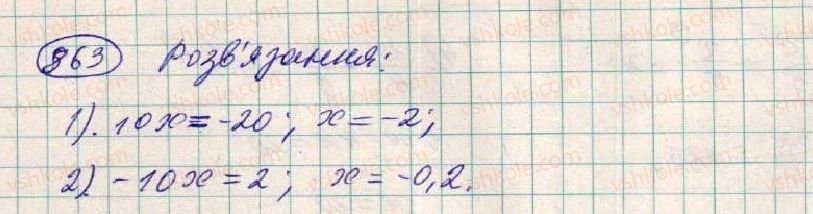 863 Розв'язання:
1). 10x = -20; x = -2;
2) -10x = 2; x = -0,2.